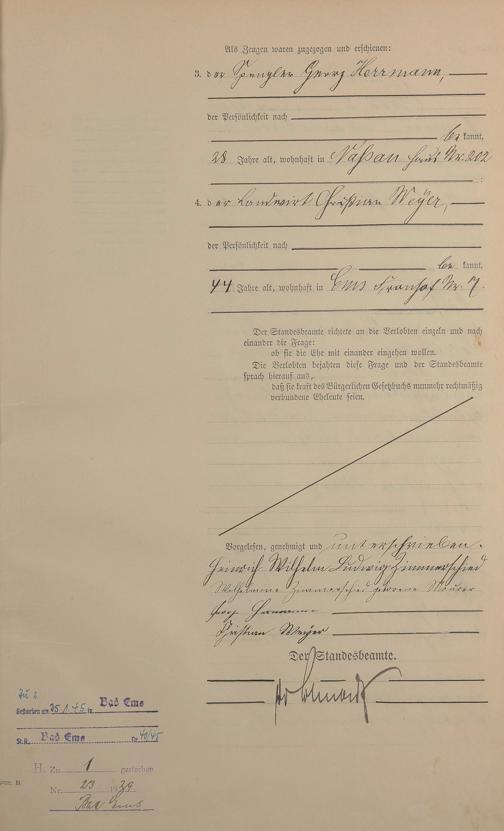 Als Zeugen waren zugezogen und erschienen:
3. der Spengler Georg Herrmann,
der Persönlichkeit nach
be kannt,
28 Jahre alt, wohnhaft in Nassau Haus Nr. 202
4. der Landwirt Christian Weyer,
der Persönlichkeit nach
be kannt,
44 Jahre alt, wohnhaft in Ems Fronhof Nr. 7.
Der Standesbeamte richtete an die Verlobten einzeln und nach
einander die Frage:
ob sie die Ehe mit einander eingehen wollen.
Die Verlobten bejahten diese Frage und der Standesbeamte
sprach hierauf aus,
daß sie kraft des Bürgerlichen Gesetzbuchs nunmehr rechtmäßig
verbundene Eheleute seien.
Vorgelesen, genehmigt und unterschrieben.
Heinrich Wilhelm Ludwig Zimmerschied
Wilhelmine Zimmerschied geborene Maurer
Georg Herrmann
Christian Weyer
Der Standesbeamte.
Zu 2
Gestorben am 25.1.45 in Bad Ems
St.A. Bad Ems Nr. 40/45
H. Zu 1 gestorben
Nr. 23 1939
Bad Ems